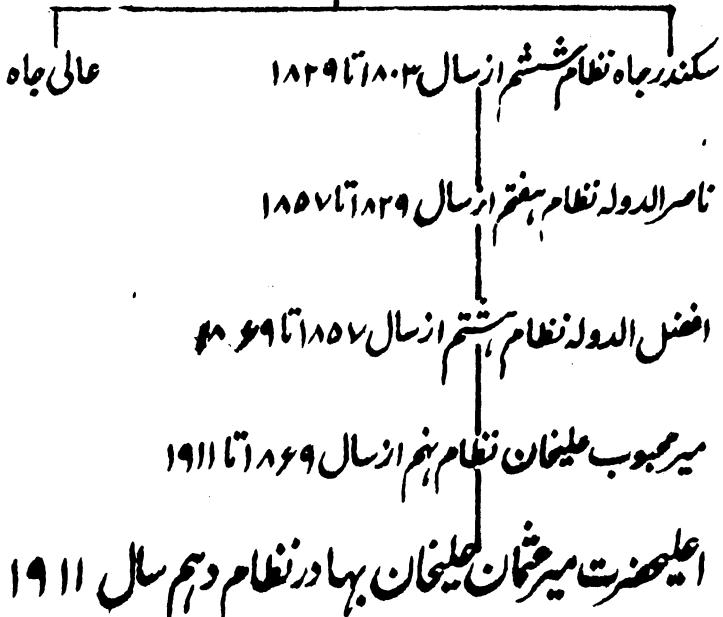 سکندرجاه نظام ششم از سال ۱۸۰۳ تا ۱۸۲۹ عالی جاه
ناصرالدوله نظام هفتم از سال ۱۸۲۹ تا ۱۸۵۷
افضل الدوله نظام هشتم از سال ۱۸۵۷ تا
میر محبوب علیخان نظام نهم از سال ۱۸۶۹ تا ۱۹۱۱
اعلیحضرت میر عثمان علیخان بهادر نظام دهم سال ۱۹۱۱